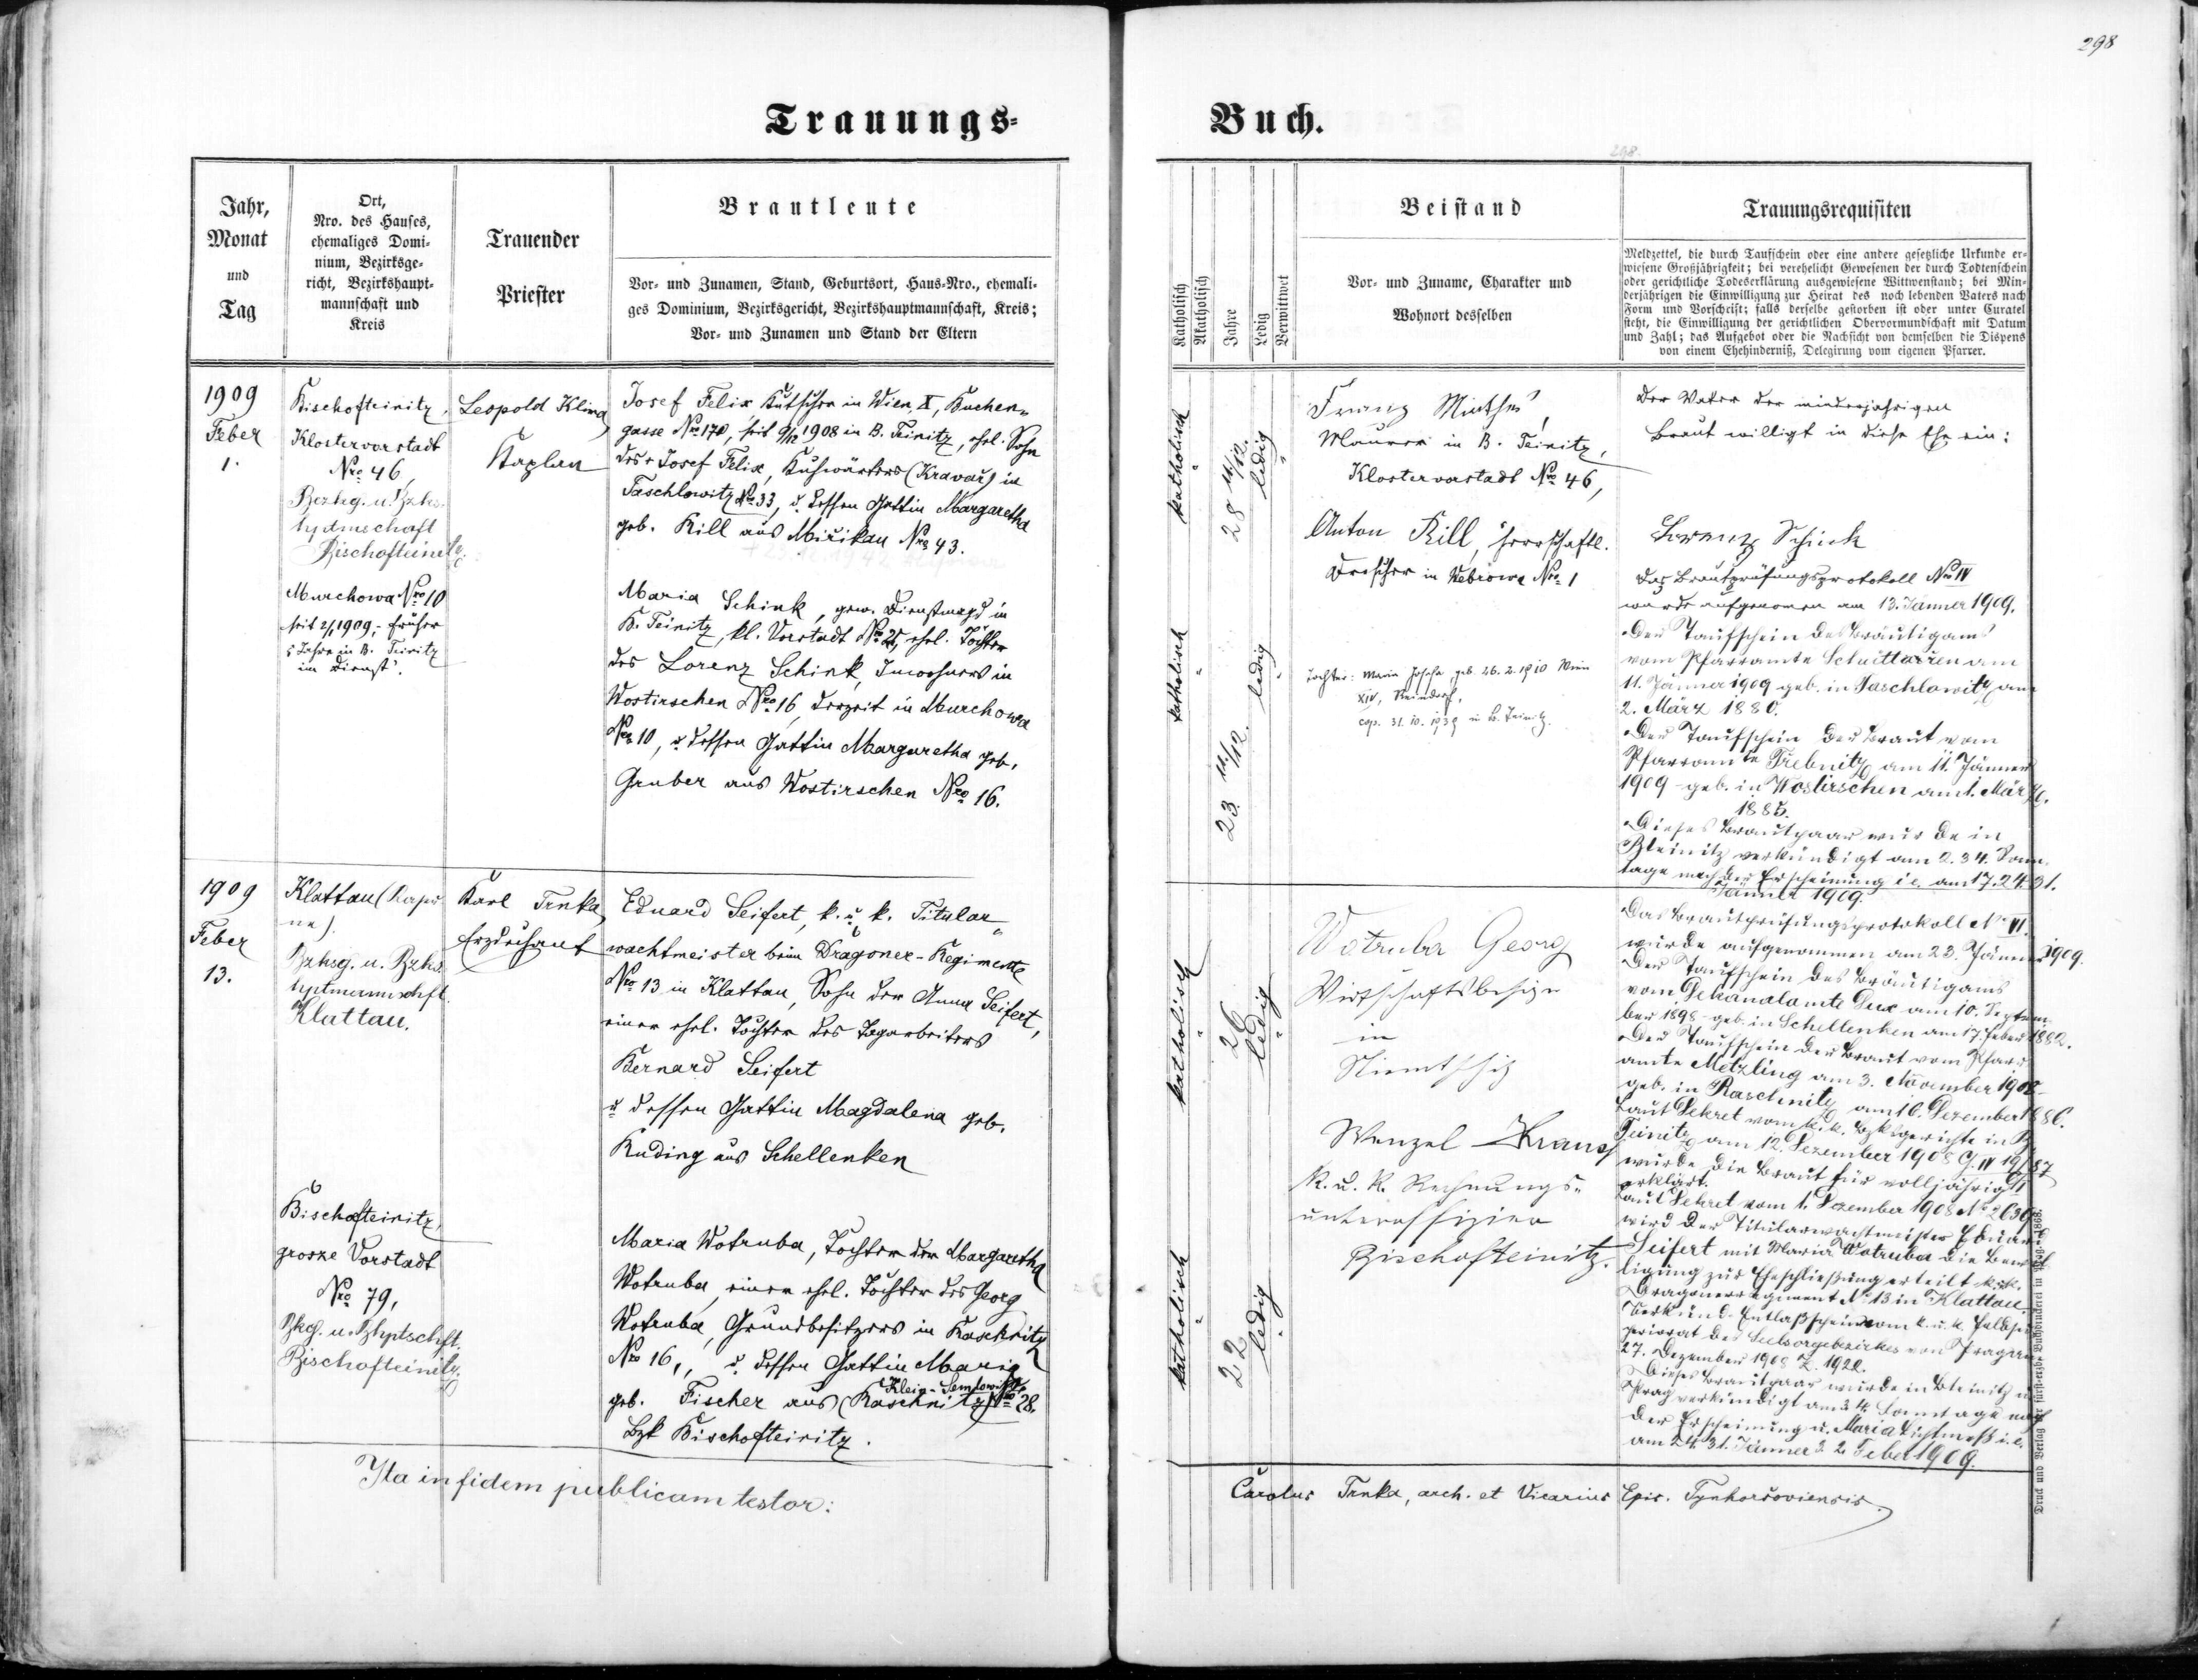 298
Trauungs-
Buch.
298.
Jahr,
Monat
und
Tag
Ort,
Nro. des Hauses,
ehemaliges Domi-
nium, Bezirksge-
richt, Bezirkshaupt-
mannschaft und
Kreis
Trauender
Priester
Brautleute
Vor- und Zunamen, Stand, Geburtsort, Haus-Nro., ehemali-
ges Dominium, Bezirksgericht, Bezirkshauptmannschaft, Kreis;
Vor- und Zunamen und Stand der Eltern
Katholisch
Akatholisch
Jahre
Ledig
Verwittwet
Beistand
Vor- und Zuname, Charakter und
Wohnort desselben
Trauungsrequisiten
Meldzettel, die durch Taufschein oder eine andere gesetzliche Urkunde er-
wiesene Großjährigkeit; bei verehelicht Gewesenen der durch Todtenschein
oder gerichtliche Todeserklärung ausgewiesene Wittwenstand; bei Min-
derjährigen die Einwilligung zur Heirat des noch lebenden Vaters nach
Form und Vorschrift; falls derselbe gestorben ist oder unter Curatel
steht, die Einwilligung der gerichtlichen Obervormundschaft mit Datum
und Zahl; das Aufgebot oder die Nachsicht von demselben die Dispens
von einem Ehehinderniß, Delegirung vom eigenen Pfarrer.
1909
Feber
1.
Bischofteinitz,
Klostervorstadt
Nro 46,
Bezhg. u. Bzhs-
hptmschaft
Bischofteinitz.
Murchowa Nro 10
seit 2/1 1909, früher
5 Jahre in B. Teinitz
im Dienst.
Leopold Klima
Kaplan
Josef Felix, Kutscher in Wien X, Buchen-
gasse Nro 170, seit 9/12 1908 in B. Teinitz, ehel. Sohn
des + Josef Felix, Kuhwärters (Kravař) in
Taschlowitz Nro 33, u. dessen Gattin Margaretha
geb. Kill aus Mirikau Nro 43.
Maria Schink, gew. Dienstmagd in
B. Teinitz, kl. Vorstadt Nro 21, ehel. Tochter
des Lorenz Schink, Inwohners in
Wostirschen Nro 16, derzeit in Murchowa
Nro 10, u. dessen Gattin Margaretha geb.
Gruber aus Wostirschen Nro 16.
katholisch
28 11/12.
ledig
katholisch
23 11/12.
ledig
Franz
Maurer in B. Teinitz,
Klostervorstadt Nro 46,
Anton Kill, herrschaftl.
Drescher in Webrowa Nro 1
Tochter: Maria Josefa, geb. 26. 2. 1910 Wien
XIV, Reindorf,
cop. 31. 10. 1939 in B. Teinitz.
Der Vater der minderjährigen
Braut willigt in diese Ehe ein:
Lorenz Schink
Das Brautprüfungsprotokoll Nro IV
wurde aufgenommen am 13. Jänner 1909.
Der Taufschein des Bräutigams
vom Pfarramte Schüttarschen am
11. Jänner 1909 geb. in Taschlowitz am
2. März 1880.
Der Taufschein der Braut vom
Pfarramte Trebnitz am 11. Jänner
1909 - geb. in Wostirschen am 1. März
1885.
Dieses Brautpaar wurde in
Bteinitz verkündigt am 2. 3 4. Sonn-
tage nach der Erscheinung i e. am 17. 24. 31.
Jänner 1909.
1909
Feber
13.
Klattau (Kaser-
ne).
Bzhsg. u. Bzhs
hptmannschft.
Klattau.
Bischofteinitz,
grosze Vorstadt
Nro 79,
Bzkg. u. Bhptschft.
Bischofteinitz.
Karl Trnka
Erzdechant
Eduard Seifert, k. u. k. Titular-
wachtmeister beim Dragoner-Regimente
Nro 13 in Klattau, Sohn der Anna Seifert,
einer ehel. Tochter des Tagarbeiters
Bernard Seifert
u dessen Gattin Magdalena geb.
Ruding aus Schellenken
Maria Wotruba, Tochter der Margaretha
Wotruba, einer ehel. Tochter des Georg
Wotruba, Grundbesitzers in Raschnitz
Nro 16, u. dessen Gattin Maria
Klein-Semlowitz
geb. Fischer aus (Raschnitz) Nro 28.
Bzk Bischofteinitz.
katholisch
26
ledig
katholisch
22
ledig
Wotruba Georg
Wirtschaftsbesitzer
in
Wenzel Kraus
k. u. k. Rechnungs-
unteroffizier
Bischofteinitz.
Das Brautprüfungsprotokoll No VI.
wurde aufgenommen am 23. Jänner 1909.
Der Taufschein des Bräutigams
vom Dekanalamte Dux am 10. Septem-
ber 1898 - geb. in Schellenken am 17. Feber 1882.
Der Taufschein der Braut vom Pfarr-
amte Metzling am 3. November 1908
geb. in Raschnitz am 16. Dezember 1886.
Laut Dekret vom k. k. Bzksgerichte in B.
Teinitz am 12. Dezember 1908 G. IV 19/87
wurde die Braut für volljährig
erklärt.
Laut Dekret vom 1. Dezember 1908 No 2639
wird der Titularwachtmeister Eduard
Seifert mit Maria Wotruba die Bewil-
ligung zur Eheschließung erteilt k. u. k.
Dragonerregiment No 13 in Klattau.
Verkünd. Entlaßschein vom k. u. k. Feldsu-
periorat des Seelsorgebezirkes von Prag am
27. Dezember 1908 Z. 1920.
Dieses Brautpaar wurde in Bteinitz u
Prag verkündigt am 3 4. Sonntage nach
der Erscheinung u. Maria Lichtmeß i. e.
am 24. 31. Jänner 2. Feber 1909.
Ita in fidem publicam testor:
Carolus Trnka, arch. et Vicarius Epis. Tynhoršoviensis.
Druck und Verlag der fürst-erzb. Buchdruckerei in Prag. 1868.